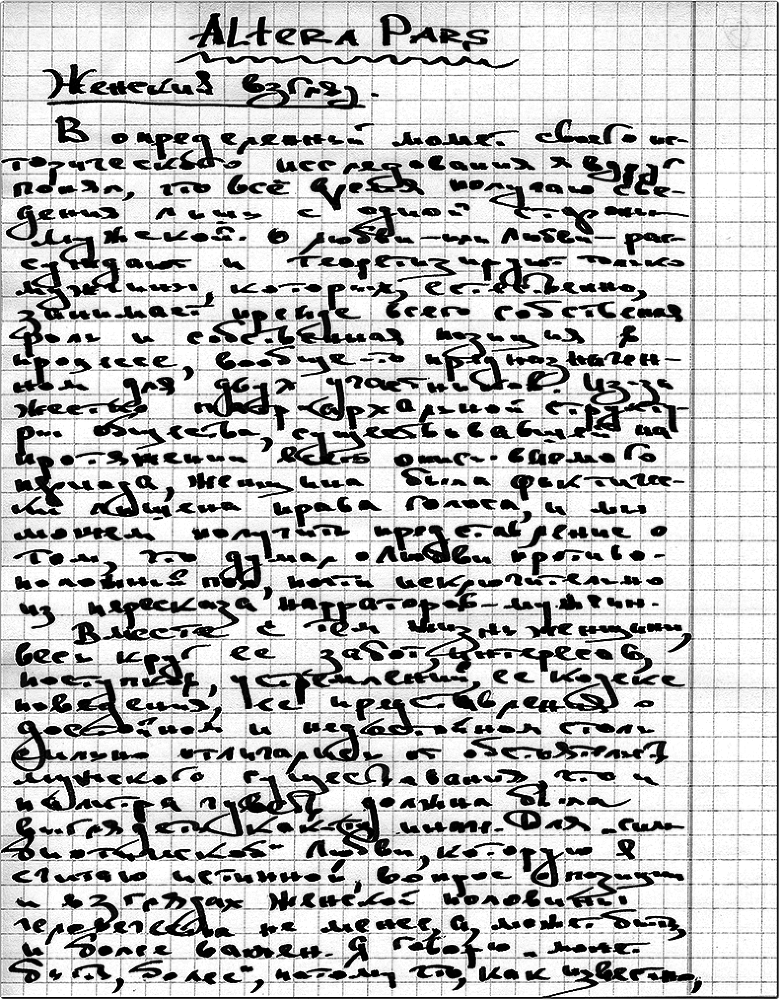 Altera Pars
Женский взгляд.
В определенный момент своего ис-
торического исследования я вдруг
понял, что всё время получаю све-
дения лишь с одной стороны –
мужской. О любви – или Любви – рас-
суждают и теоретизируют только
мужчины, которых, естественно,
занимает прежде всего собственная
роль и собственная позиция в
процессе, вообще-то предназначен-
ном для двух участников. Из-за
жестко патриархальной структу-
ры общества, существовавшей на
протяжении всего описываемого
периода, женщина была фактичес-
ки лишена права голоса, и мы
можем получить представление о
том, что думал о любви противо-
положный пол, почти исключительно
из пересказа нарраторов-мужчин.
Вместе с тем жизнь женщины,
весь круг ее забот, интересов,
поступков, устремлений, ее кодекс
поведения, ее представления о
достойном и недостойном столь
сильно отличались от обстоятельств
мужского существования, что и
палитра чувств должна была
выглядеть как-то иначе. Для „сим-
биотической“ Любви, которую я
считаю истинной, вопрос о позиции
и взглядах женской половины
человечества не менее, а, может быть,
и более важен. Я говорю „может
быть, более“, потому что, как известно,